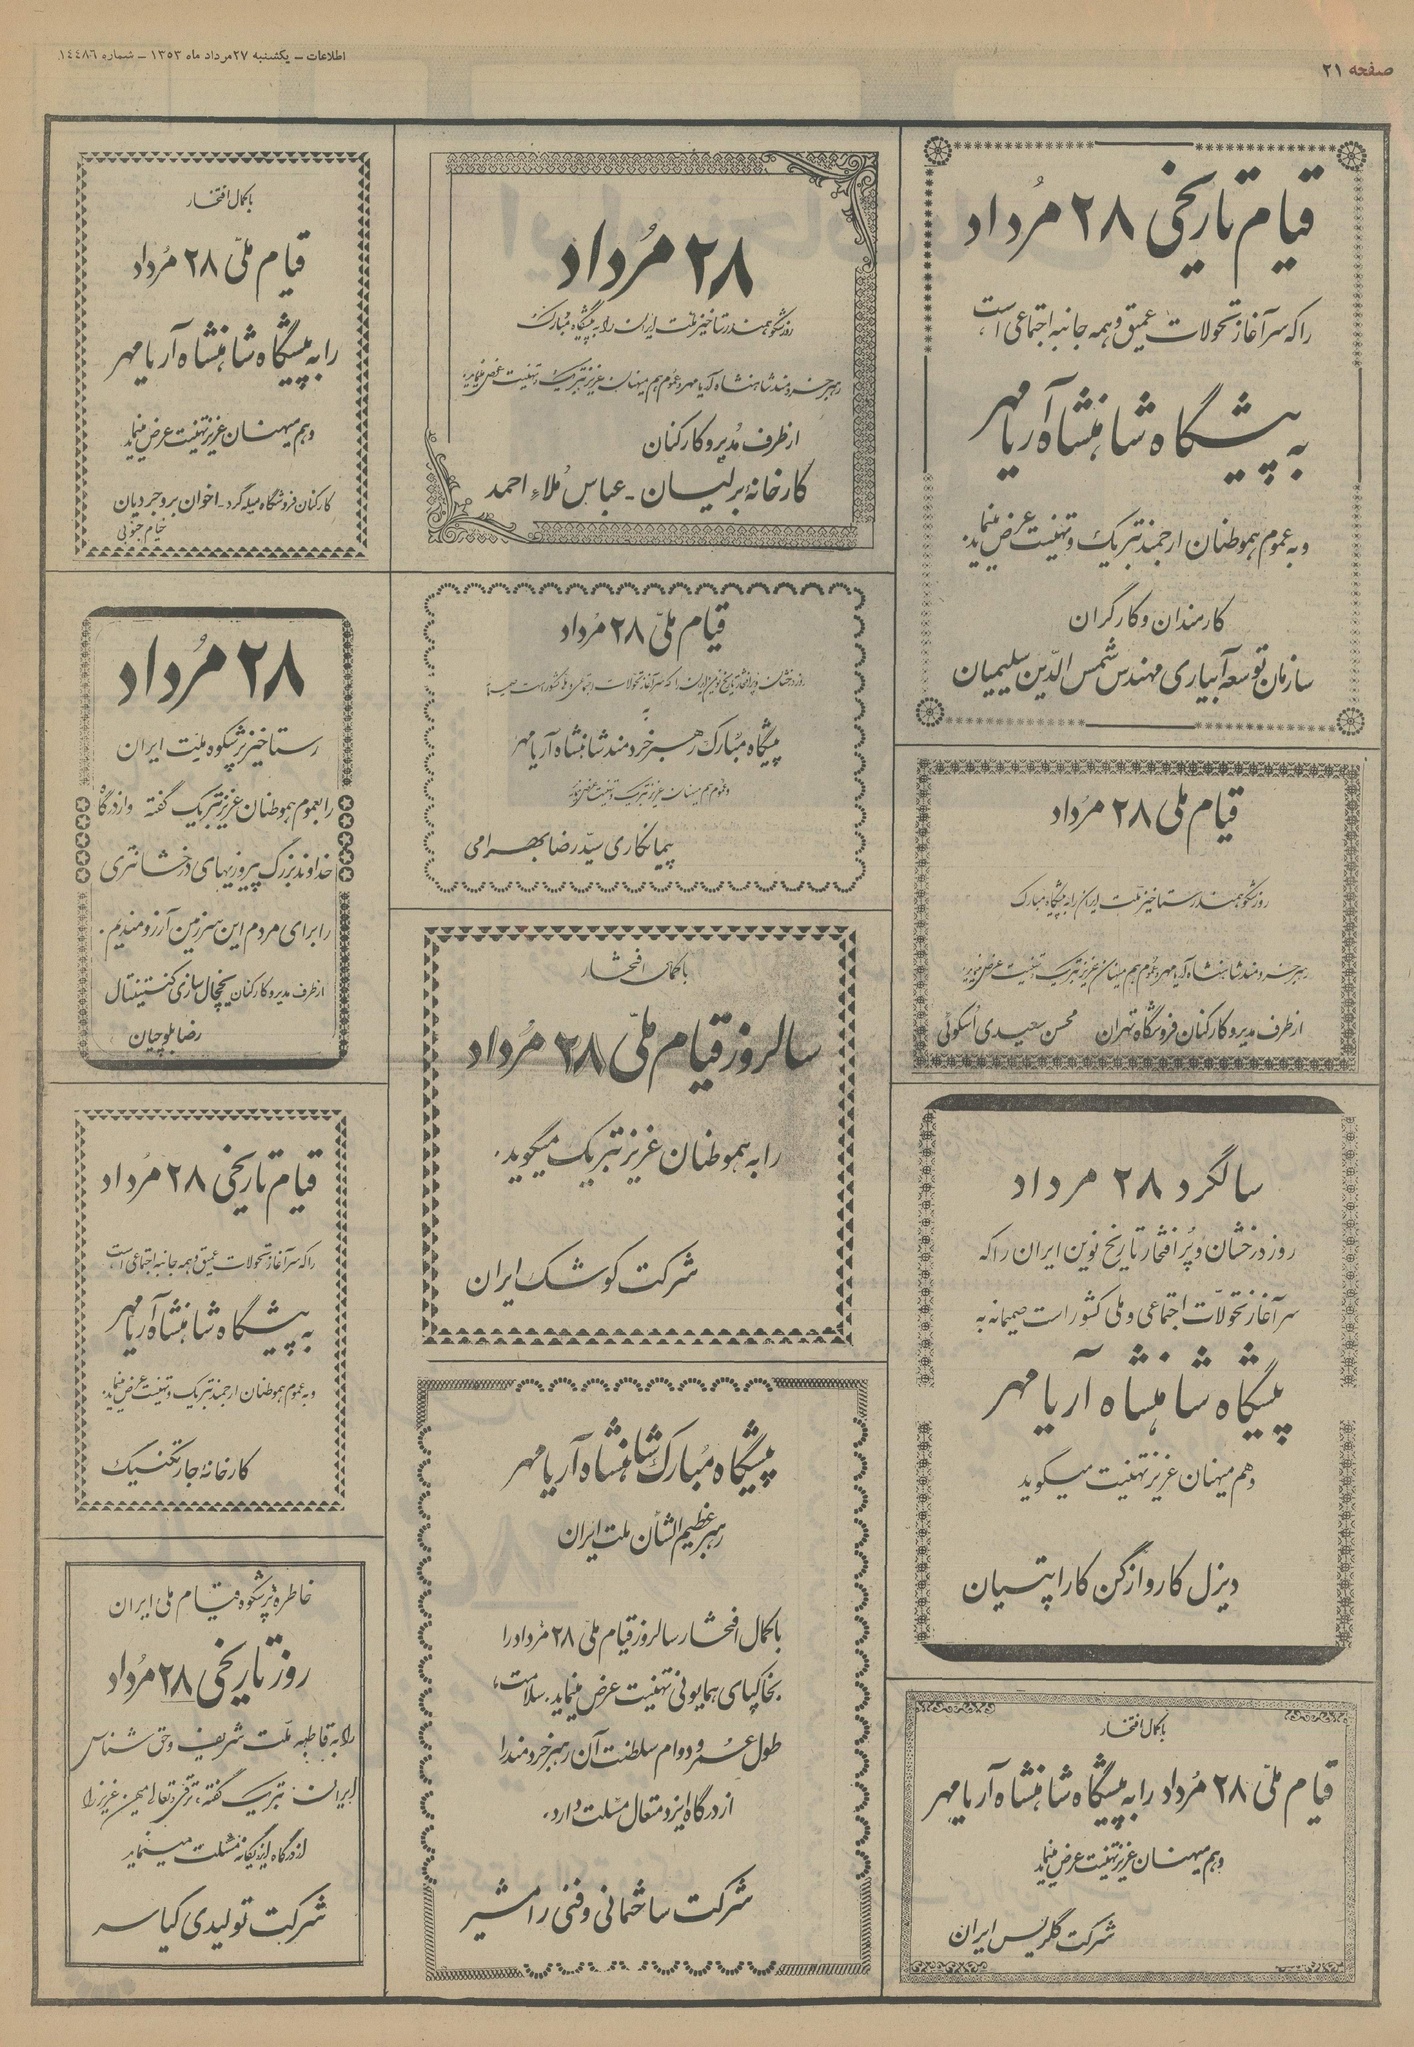 صفحه ۲۱
اطلاعات ـ یکشنبه ۲۷ مرداد ماه ۱۳۵۳ ـ شماره ۱۴۴۸۶
قیام تاریخی ۲۸ مرداد
را که سرآغاز تحولات عمیق و همه جانبه اجتماعی است،
به پیشگاه شاهنشاه آریامهر
و به عموم هموطنان ارجمند تبریک و تهنیت عرض مینماید.
کارمندان و کارگران
سازمان توسعه آبیاری مهندس شمس الدین سلیمیان
قیام ملی ۲۸ مرداد
روز شکوهمند رستاخیز ملت ایران را به پیشگاه مبارک
رهبر خردمند شاهنشاه آریامهر و عموم هم میهنان عزیز تبریک و تهنیت عرض مینماید.
از طرف مدیر و کارکنان فروشگاه تهران محسن سعیدی اسکوئی
سالگرد ۲۸ مرداد
روز درخشان و پرافتخار تاریخ نوین ایران را که
سرآغاز تحولات اجتماعی و ملی کشور است صمیمانه به
پیشگاه شاهنشاه آریامهر
و هم میهنان عزیز تهنیت میگوید
دیزل کاروازگن کاراپتیان
با کمال افتخار
قیام ملی ۲۸ مرداد را به پیشگاه شاهنشاه آریامهر
و هم میهنان عزیز تهنیت عرض مینماید
شرکت گلریس ایران
۲۸ مرداد
روز شکوهمند رستاخیز ملت ایران را به پیشگاه مبارک
رهبر خردمند شاهنشاه آریامهر و عموم هم میهنان عزیز تبریک و تهنیت عرض مینماید.
از طرف مدیر و کارکنان
کارخانه برلیان ـ عباس ملاء احمد
قیام ملی ۲۸ مرداد
روز درخشان و پرافتخار تاریخ نوین ایران را که سرآغاز تحولات اجتماعی و ملی کشور است صمیمانه
پیشگاه مبارک رهبر خردمند شاهنشاه آریامهر
و عموم هم میهنان عزیز تبریک و تهنیت
پیمانکاری سید رضا بهرامی
با کمال افتخار
سالروز قیام ملی ۲۸ مرداد
را به هموطنان عزیز تبریک میگوید.
شرکت کوشک ایران
پیشگاه مبارک شاهنشاه آریامهر
رهبر عظیم الشأن ملت ایران
با کمال افتخار سالروز قیام ملی ۲۸ مرداد را
بخاکپای همایونی تهنیت عرض مینماید. سلامت،
طول عمر و دوام سلطنت آن رهبر خردمند را
از درگاه ایزد متعال مسئلت دارد.
شرکت ساختمانی و فنی رامشیر
با کمال افتخار
قیام ملی ۲۸ مرداد
را به پیشگاه شاهنشاه آریامهر
و هم میهنان عزیز تهنیت عرض مینماید
کارکنان فروشگاه میله گرد ـ اخوان بروجردیان
خیام جنوبی
۲۸ مرداد
رستاخیز پرشکوه ملت ایران
را بعموم هموطنان عزیز تبریک گفته و از درگاه
خداوند بزرگ پیروزیهای درخشانتری
را برای مردم این سرزمین آرزومندیم.
از طرف مدیر و کارکنان یخچال سازی کنتیننتال
رضا بلوچیان
قیام تاریخی ۲۸ مرداد
را که سرآغاز تحولات عمیق و همه جانبه اجتماعی است
به پیشگاه شاهنشاه آریامهر
و به عموم هموطنان ارجمند تبریک و تهنیت عرض مینماید.
کارخانه جار تکنیک
خاطره پرشکوه قیام ملی ایران
روز تاریخی ۲۸ مرداد
را به قاطبه ملت شریف و حق شناس
ایران تبریک گفته، ترقی و تعالی میهن عزیز را
از درگاه ایزد یگانه مسئلت مینماید
شرکت تولیدی کیاسر